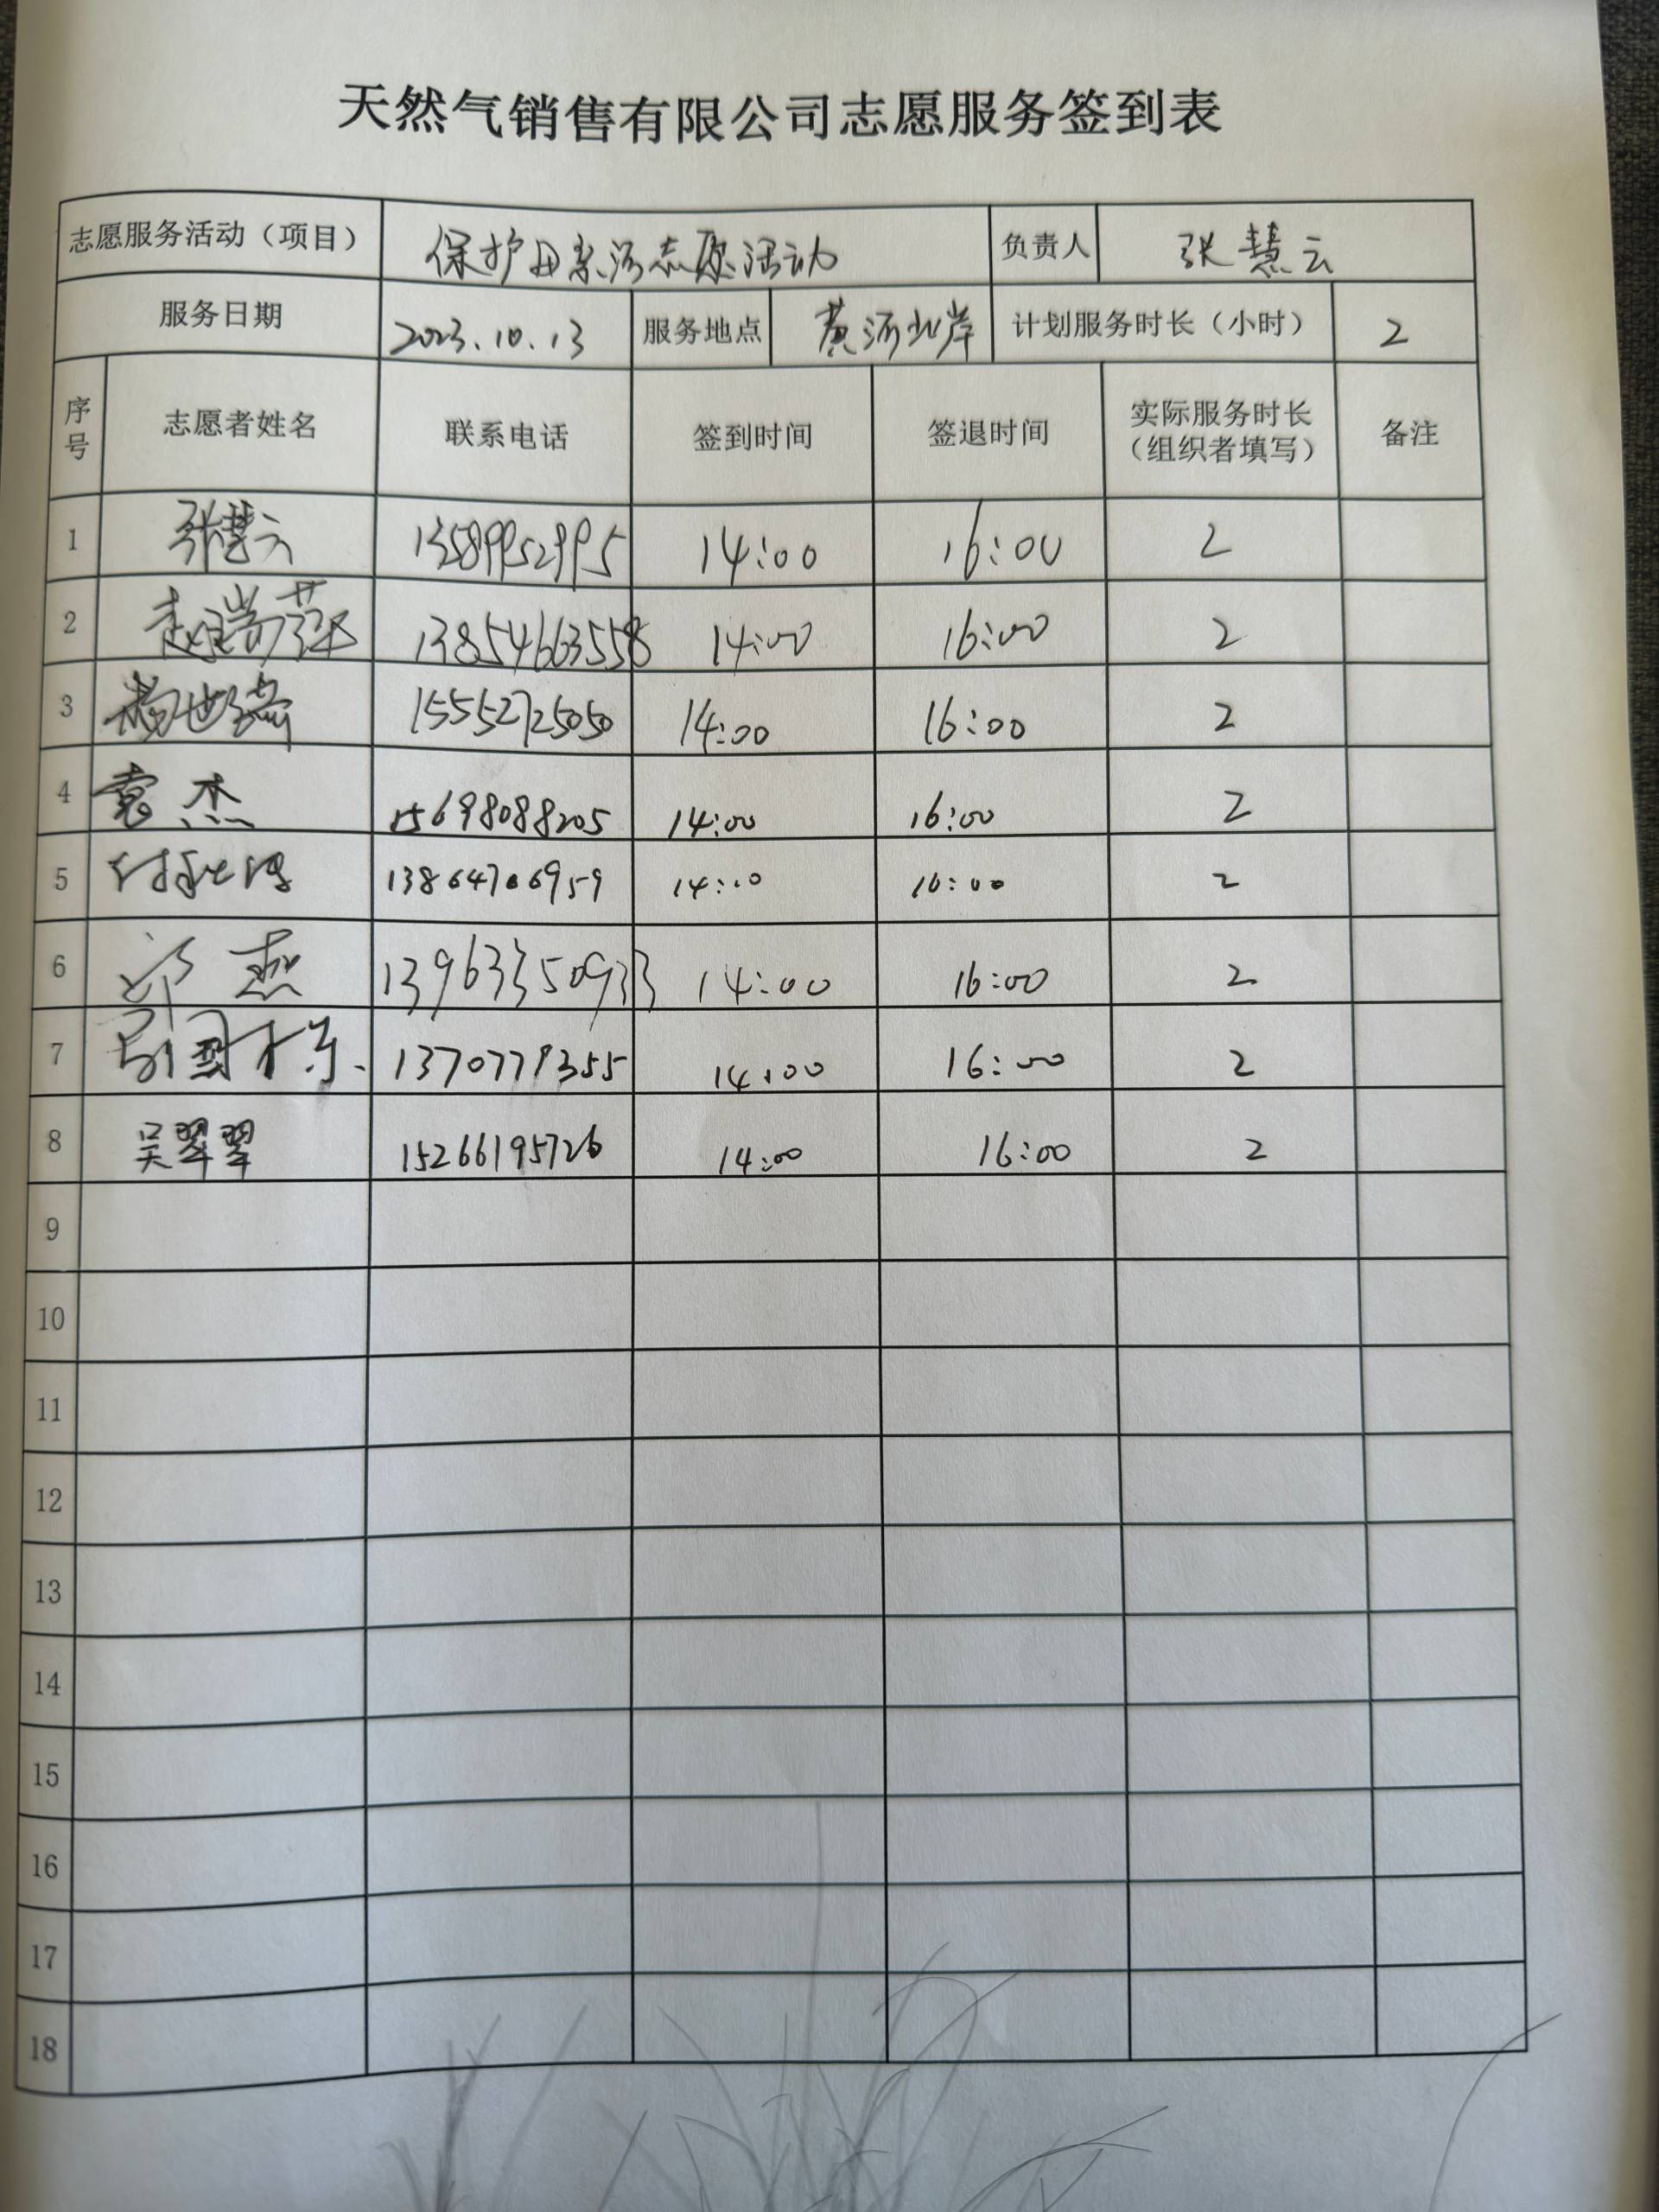 天然气销售有限公司志愿服务签到表
志愿服务活动（项目） 保护母亲河志愿活动 负责人 张慧云
服务日期 2023.10.13 服务地点 黄河北岸 计划服务时长（小时） 2
序号 志愿者姓名 联系电话 签到时间 签退时间 实际服务时长（组织者填写） 备注
1 张慧云 13589952995 14:00 16:00 2
2 赵瑞萍 13854663558 14:00 16:00 2
3 杨世瑞 15552725050 14:00 16:00 2
4 袁杰 15698088205 14:00 16:00 2
5 13864706959 14:00 16:00 2
6 邱燕 13963350933 14:00 16:00 2
7 14:00 16:00 2
8 吴翠翠 15266195726 14:00 16:00 2
9
10
11
12
13
14
15
16
17
18